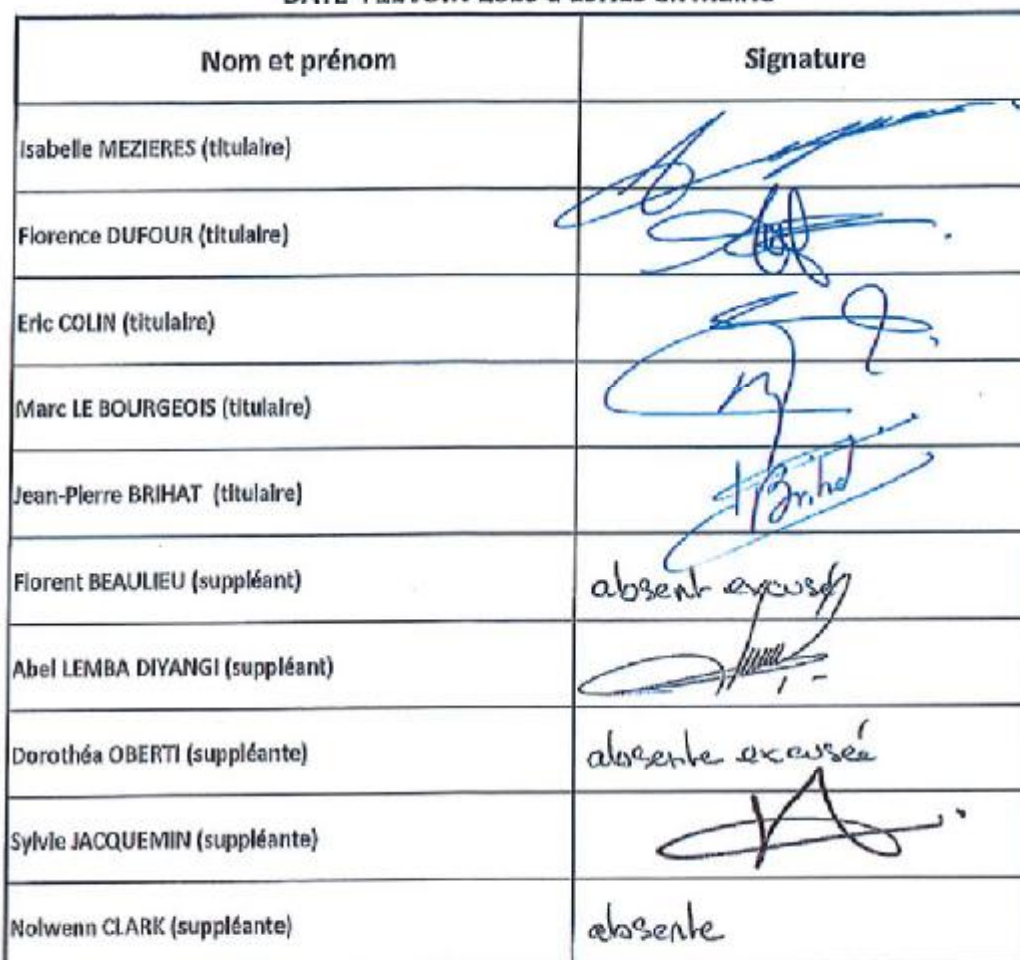 Nom et prénom Signature
Isabelle MEZIERES (titulaire)
Florence DUFOUR (titulaire)
Eric COLIN (titulaire)
Marc LE BOURGEOIS (titulaire)
Jean-Pierre BRIHAT (titulaire)
Florent BEAULIEU (suppléant) absent excusé
Abel LEMBA DIYANGI (suppléant)
Dorothéa OBERTI (suppléante) absente excusée
Sylvie JACQUEMIN (suppléante)
Nolwenn CLARK (suppléante) absente